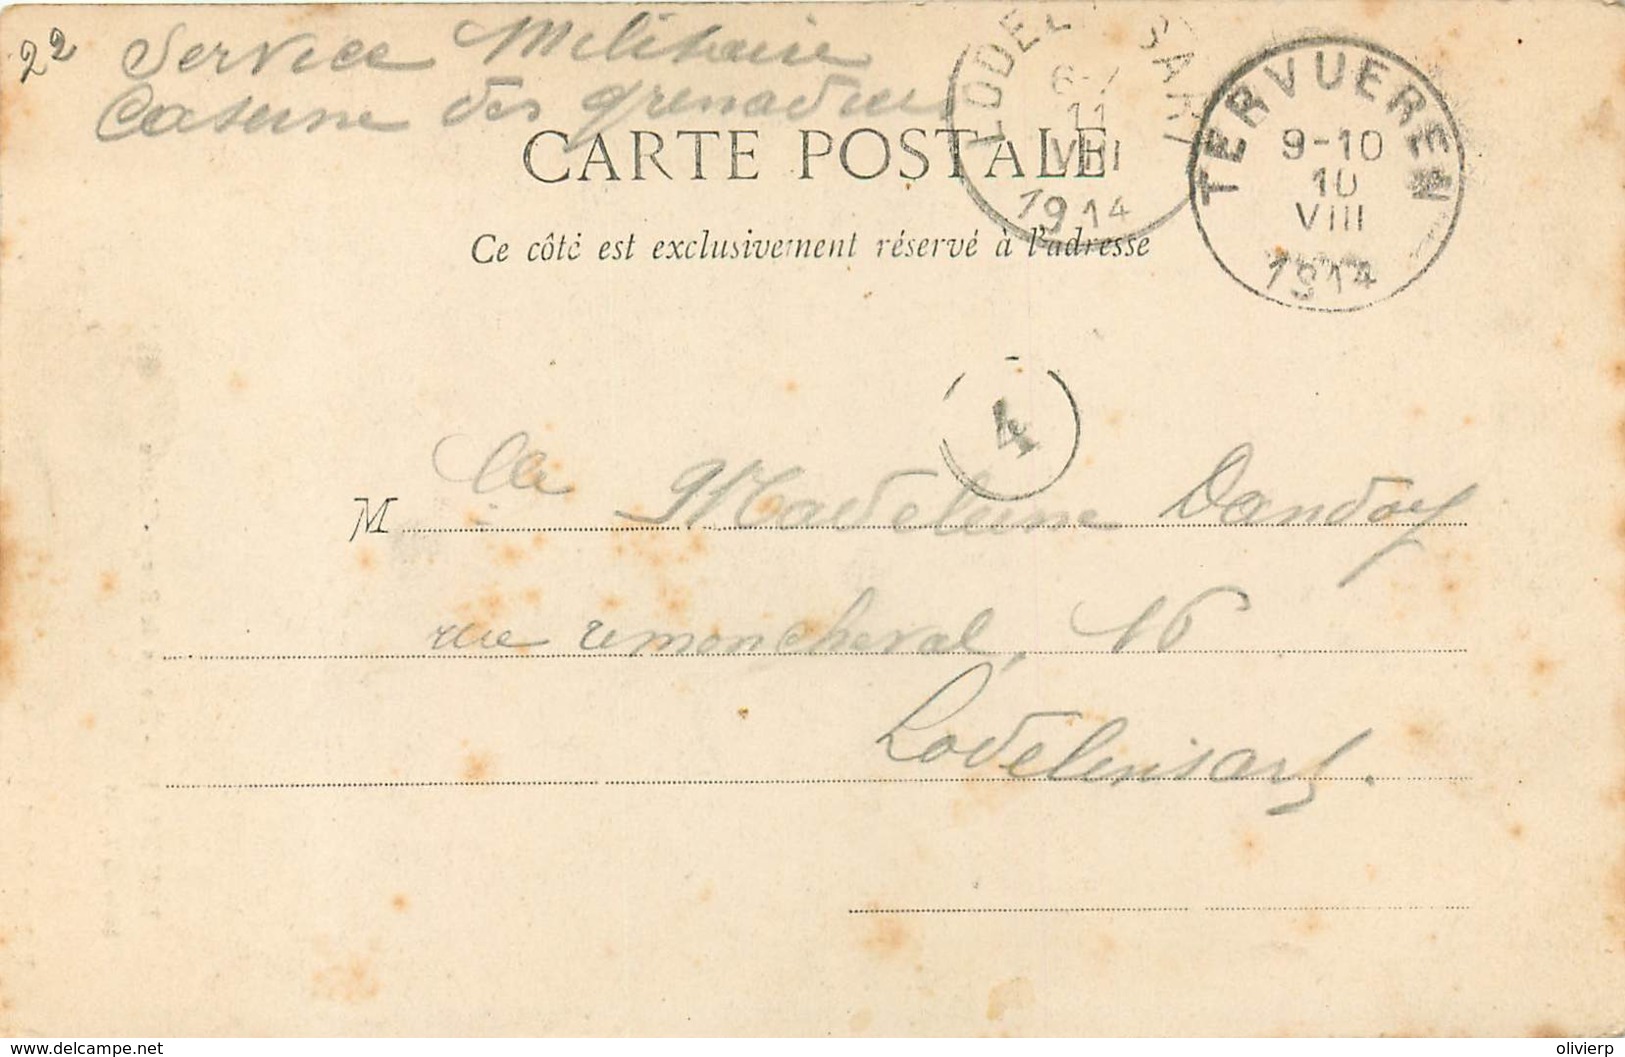 22
Service Militaire
Caserne des grenadiers
CARTE POSTALE
Ce côté est exclusivement réservé à l'adresse
LODEL SART
6-7
11
VIII
1914
TERVUEREN
9-10
10
VIII
1914
4
M lle Madeleine Dandoy
rue 16
Lodelinsart.
www.delcampe.net
olivierp